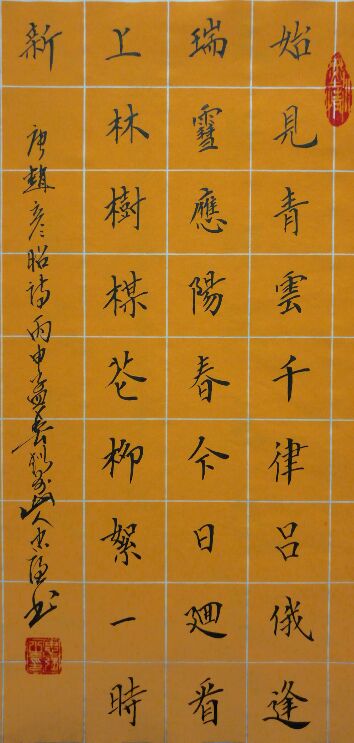 始見青雲千律呂俄逢
瑞雪應陽春今日迴看
上林樹楳花柳絮一時
新
唐趙彦昭詩丙申孟春